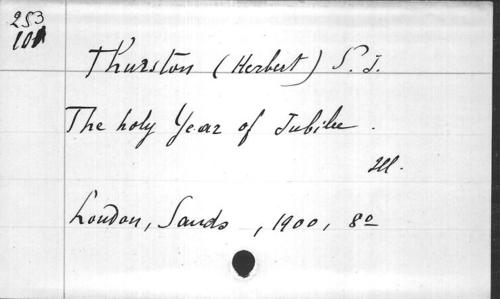 253
101
Thurston (Herbert) S. J.
The holy Year of Jubilee.
Ill.
London, Sands, 1900, 8º